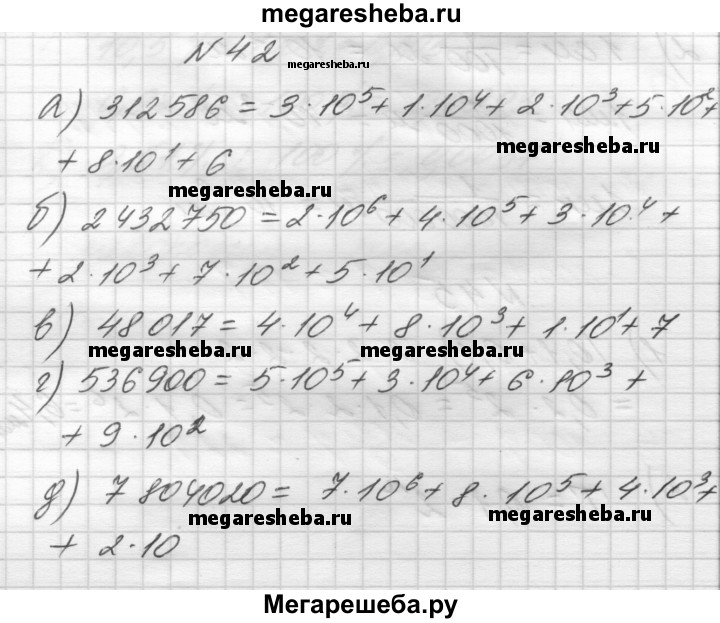 megaresheba.ru
N 42
megaresheba.ru
а) 312586 = 3·10⁵ + 1·10⁴ + 2·10³ + 5·10² +
megaresheba.ru
+ 8·10¹ + 6
megaresheba.ru
б) 2432750 = 2·10⁶ + 4·10⁵ + 3·10⁴ +
+ 2·10³ + 7·10² + 5·10¹
в) 48017 = 4·10⁴ + 8·10³ + 1·10¹ + 7
megaresheba.ru megaresheba.ru
г) 536900 = 5·10⁵ + 3·10⁴ + 6·10³ +
+ 9·10²
д) 7804020 = 7·10⁶ + 8·10⁵ + 4·10³ +
megaresheba.ru megaresheba.ru
+ 2·10
Мегарешеба.ру